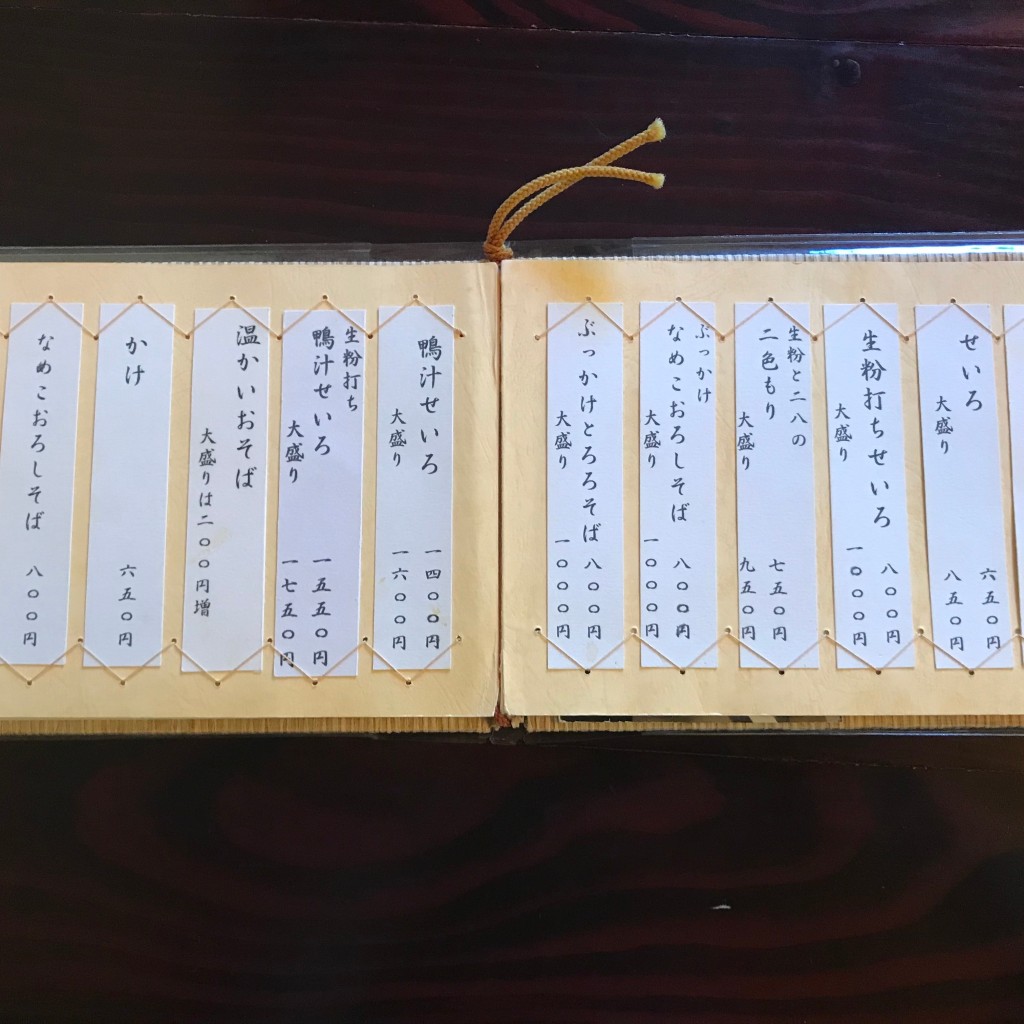 せいろ 六五〇円
大盛り 八五〇円
生粉打ちせいろ 八〇〇円
大盛り 一〇〇〇円
生粉と二八の
二色もり 七五〇円
大盛り 九五〇円
ぶっかけ
なめこおろしそば 八〇〇円
大盛り 一〇〇〇円
ぶっかけとろろそば 八〇〇円
大盛り 一〇〇〇円
鴨汁せいろ 一四〇〇円
大盛り 一六〇〇円
生粉打ち
鴨汁せいろ 一五五〇円
大盛り 一七五〇円
温かいおそば
大盛りは二〇〇円増
かけ 六五〇円
なめこおろしそば 八〇〇円